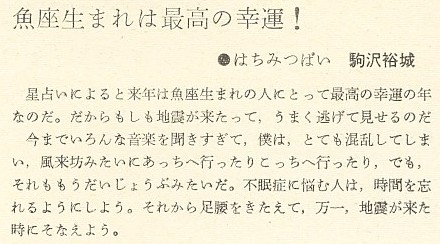 魚座生まれは最高の幸運!
●はちみつぱい 駒沢裕城
星占いによると来年は魚座生まれの人にとって最高の幸運の年
なのだ。だからもしも地震が来たって,うまく逃げて見せるのだ
今までいろんな音楽を聞きすぎて,僕は,とても混乱してしま
い,風来坊みたいにあっちへ行ったりこっちへ行ったり,でも,
それももうだいじょうぶみたいだ。不眠症に悩む人は,時間を忘
れるようにしよう。それから足腰をきたえて,万一,地震が来た
時にそなえよう。